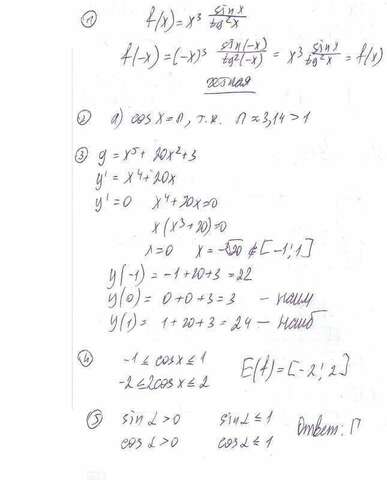 ① f(x) = x³ sin x / tg² x
f(-x) = (-x)³ sin(-x) / tg²(-x) = x³ sin x / tg² x = f(x)
четная
② а) cos x = π, т.к. π ≈ 3,14 > 1
③ y = x⁵ + 20x² + 3
y' = x⁴ + 20x
y' = 0 x⁴ + 20x = 0
x(x³ + 20) = 0
x = 0 x = -∛20 ∉ [-1; 1]
y(-1) = -1 + 20 + 3 = 22
y(0) = 0 + 0 + 3 = 3 — наим
y(1) = 1 + 20 + 3 = 24 — наиб
④ -1 ≤ cos x ≤ 1
-2 ≤ 2cos x ≤ 2 E(f) = [-2; 2]
⑤ sin α > 0 sin α ≤ 1
cos α > 0 cos α ≤ 1 Ответ: Г